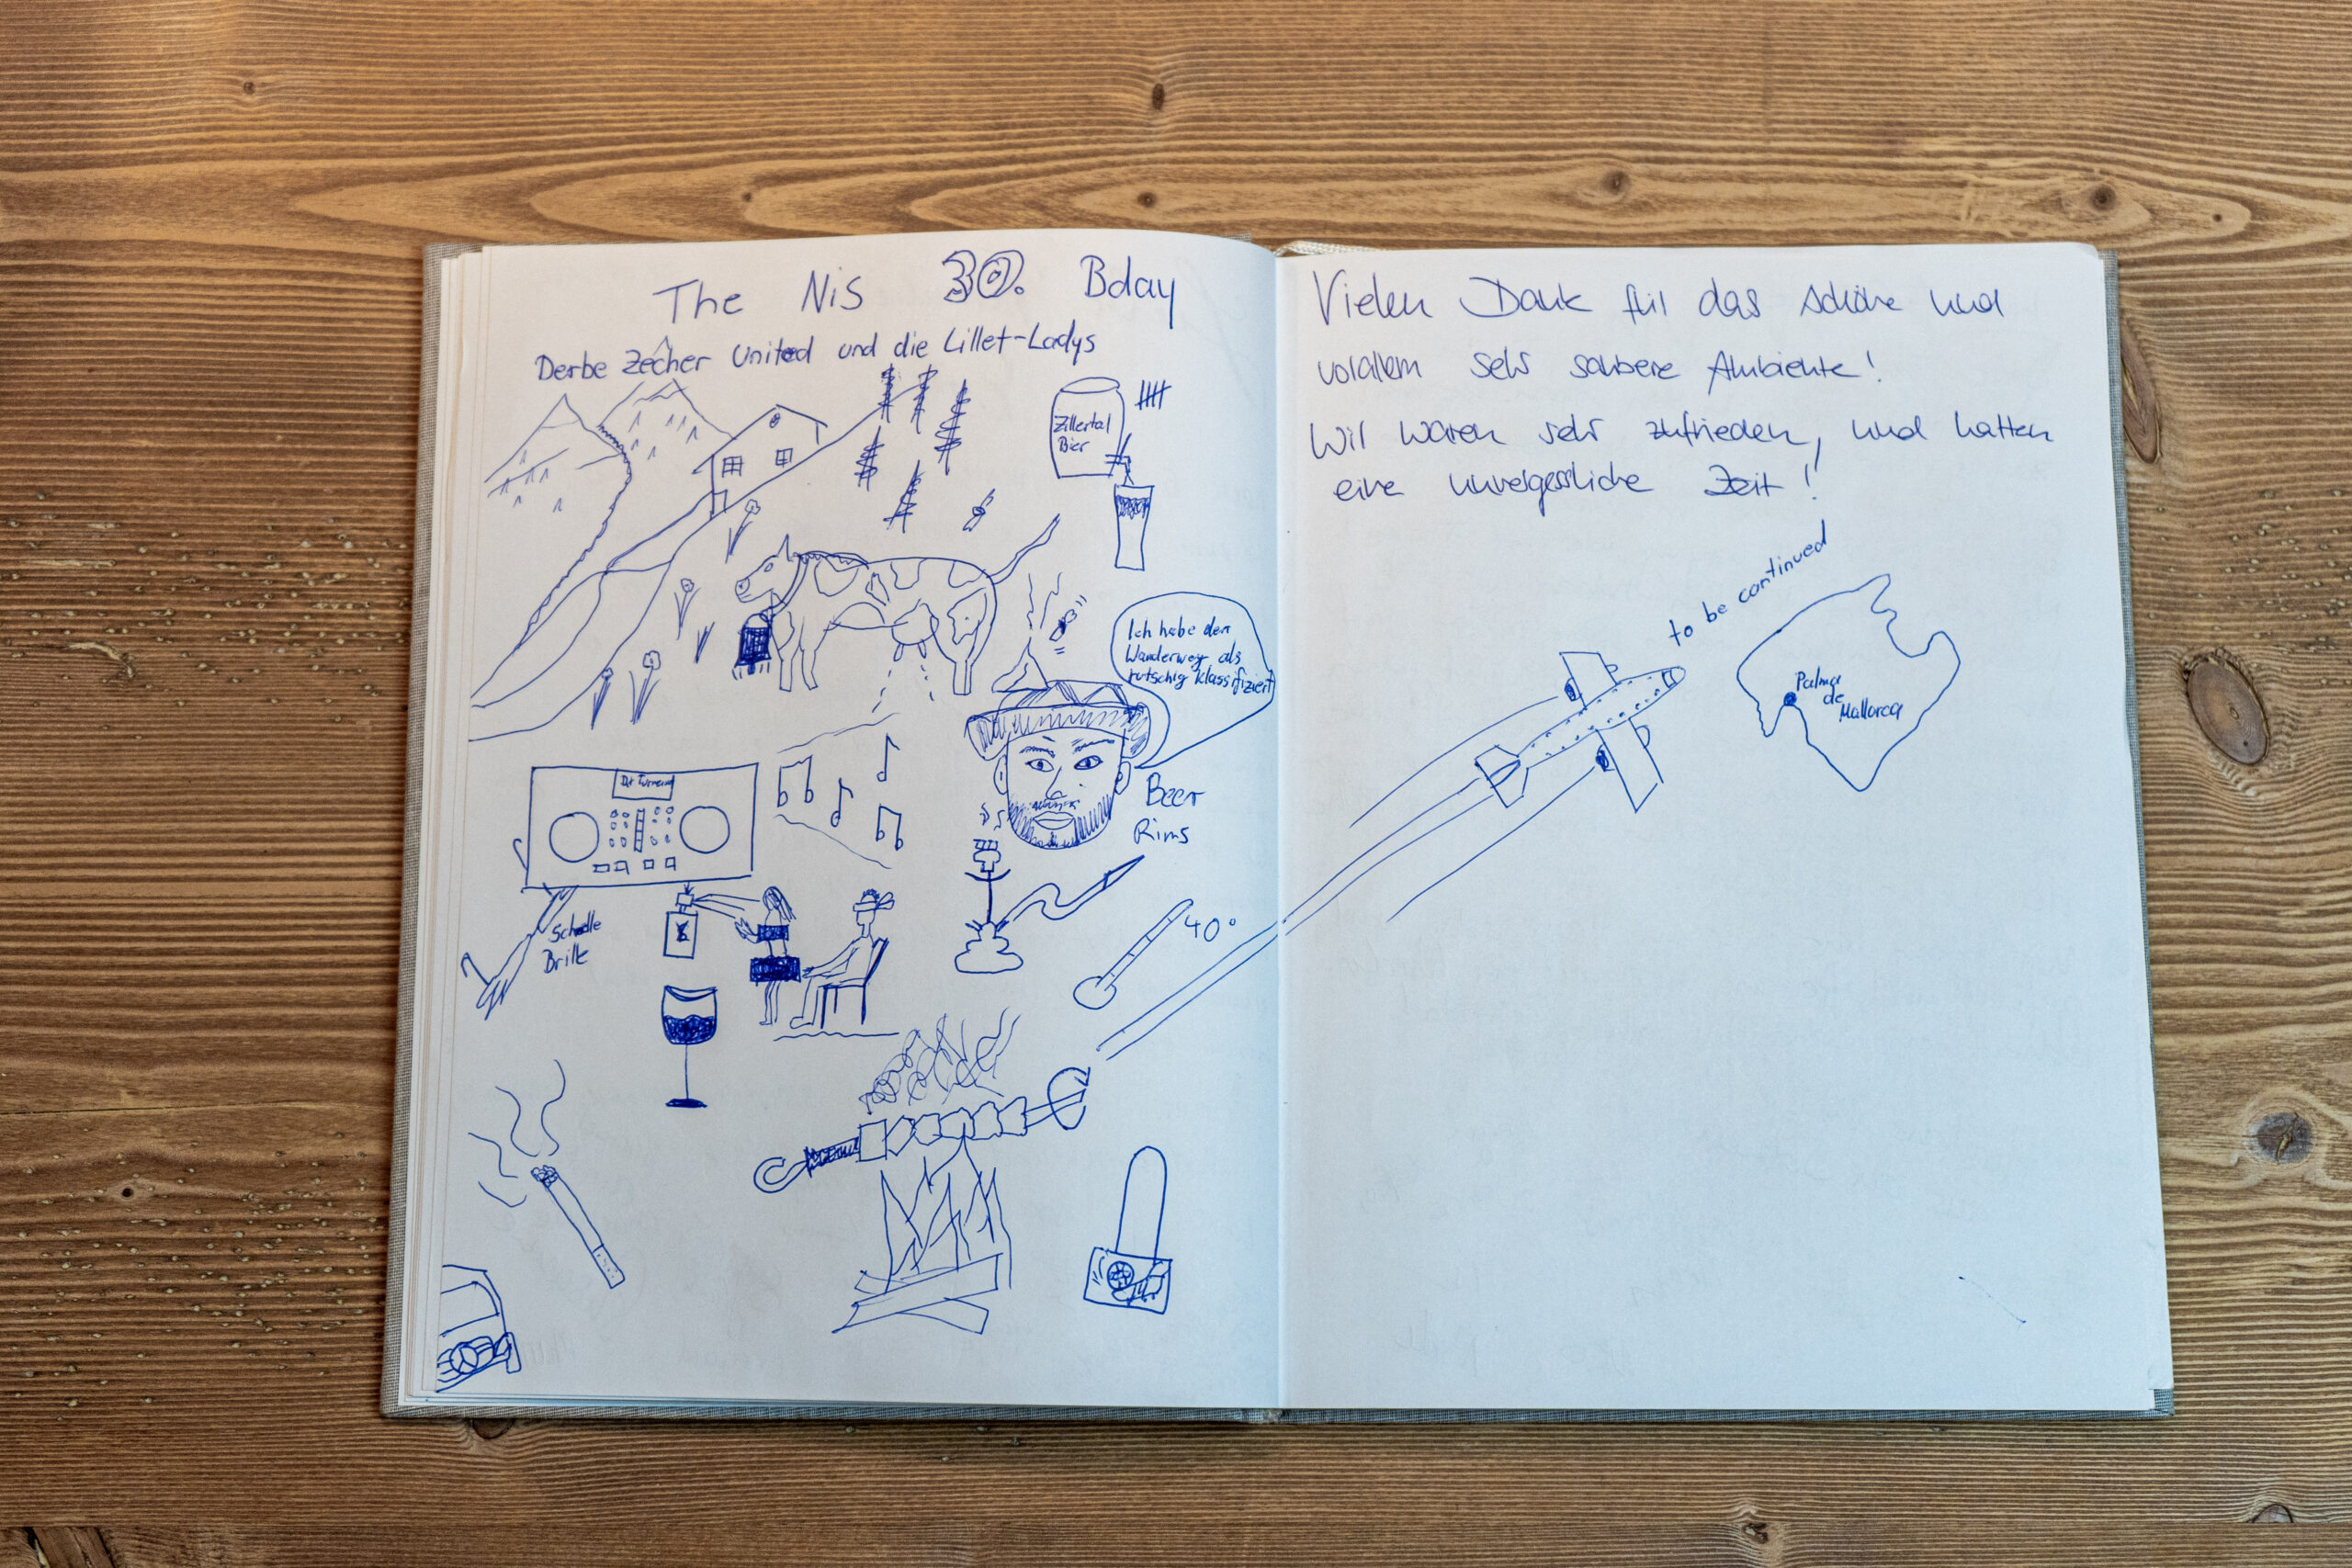 The Nis 30. Bday
Derbe Zecher United und die Lillet-Ladys
Zillertal
Bier
Ich habe den
Wanderweg als
rutschig klassifiziert
Beer
Rims
Schelle
Brille
40°
Vielen Dank für das schöne und
vorallem sehr saubere Ambiente!
Wir waren sehr zufrieden, und hatten
eine unvergessliche Zeit!
to be continued
Palma
de
Mallorca